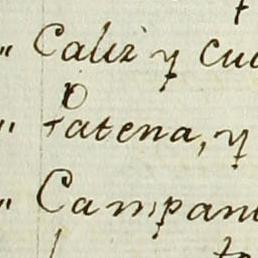 " Caliz y
" Patena, y
" Campani